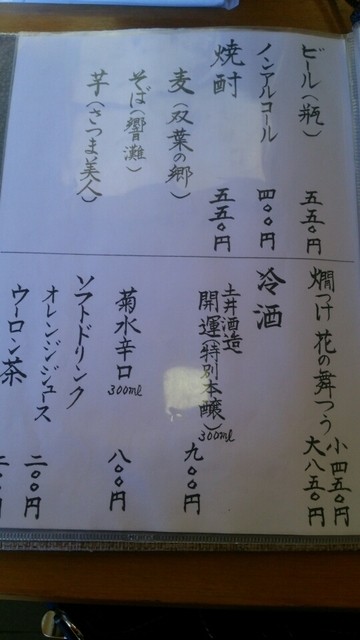 ビール(瓶) 五五〇円
ノンアルコール 四〇〇円
焼酎 五五〇円
麦(双葉の郷)
そば(響灘)
芋(さつま美人)
燗つけ 花の舞つう 小四五〇円
大八五〇円
冷酒
土井酒造
開運(特別本醸)300ml 九〇〇円
菊水辛口 300ml 八〇〇円
ソフトドリンク
オレンジジュース 二〇〇円
ウーロン茶